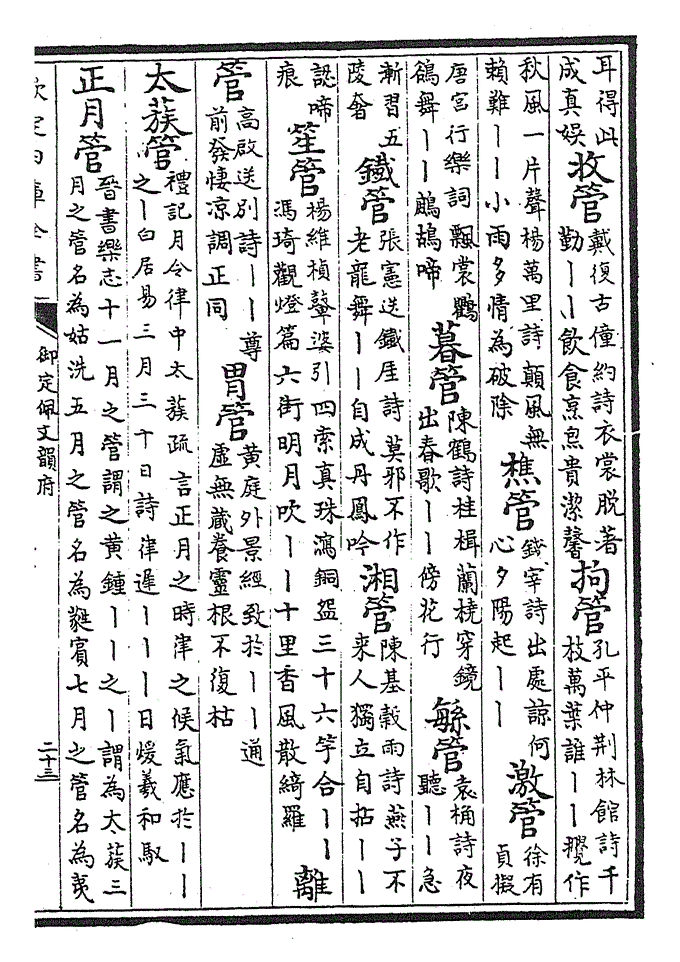 耳得此成真娱 收管 戴復古僮約詩衣裳脱著勤丨丨飲食烹炰貴潔馨 拘管 孔平仲荆林館詩千枝萬葉誰丨丨攪作
秋風一片聲楊萬里詩顛風無賴難丨丨小雨多情為破除 樵管 錢宰詩出處諒何心夕陽起丨丨 激管 徐有貞擬
唐宫行樂詞飄裳鸜鵒舞丨丨鷓鴣啼 暮管 陳鶴詩桂楫蘭橈穿鏡出春歌丨丨傍花行 緐管 袁桷詩夜聽丨丨急
漸習五陵奢 鐵管 張憲送鐵厓詩莫邪不作老龍舞丨丨自成丹鳳吟 湘管 陳基穀雨詩燕子不来人獨立自拈丨丨
認啼痕 笙管 楊維楨鞶婆引四索真珠瀉銅盌三十六竽合丨丨馮琦觀燈篇六街明月吹丨丨十里香風散綺羅 離
管 高啟送别詩丨丨尊前發悽凉調正同 胃管 黄庭外景經致於丨丨通虚無藏養靈根不復枯
太蔟管 禮記月令律中太蔟疏言正月之時律之候氣應於丨丨之丨白居易三月三十日詩律遲丨丨丨日煖羲和馭
正月管 晉書樂志十一月之管謂之黄鍾丨丨之丨謂為太蔟三月之管名為姑洗五月之管名為蕤賓七月之管名為夷
欽定四庫全書 御定佩文韻府 二十三